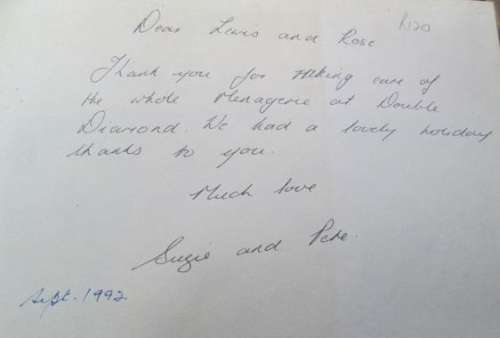 Dear Lewis and Rose
R120
Thank you for taking care of
the whole Menagerie at Double
Diamond. We had a lovely holiday
thanks to you.
Much love
Suzie and Pete.
Sept. 1992